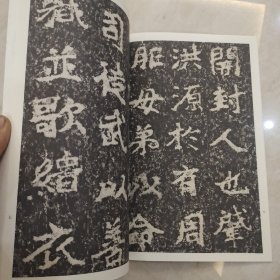 開封人也肇
洪源於有周
胙母弟以命
司徒武以善
職並歌緇衣